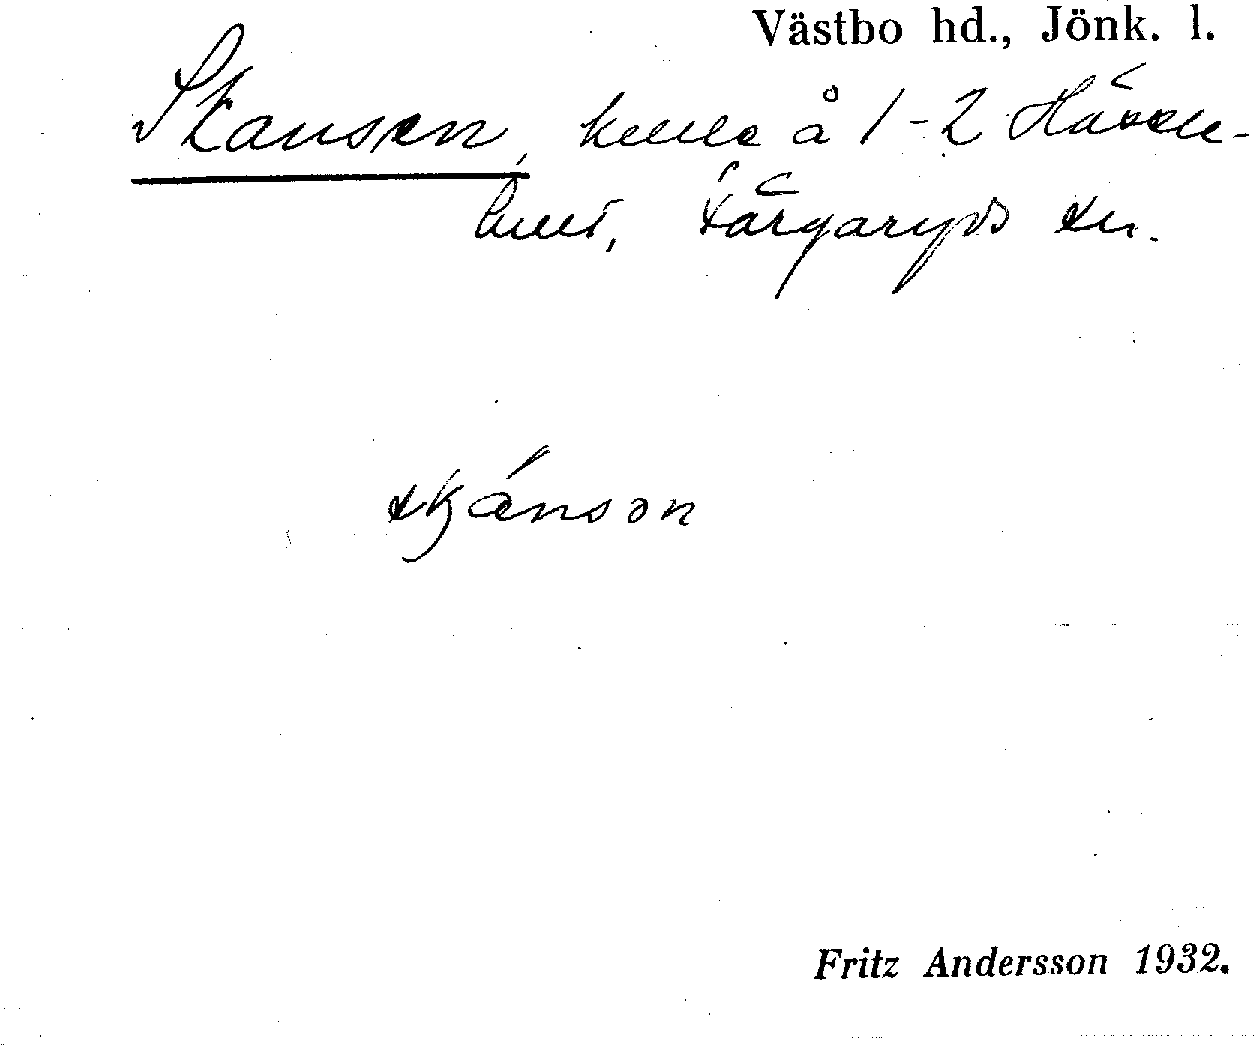 Västbo hd., Jönk. l.
Skansen, kulle å 1-2 Hässle-
hult, Färgaryds sn.
skánson
Fritz Andersson 1932.